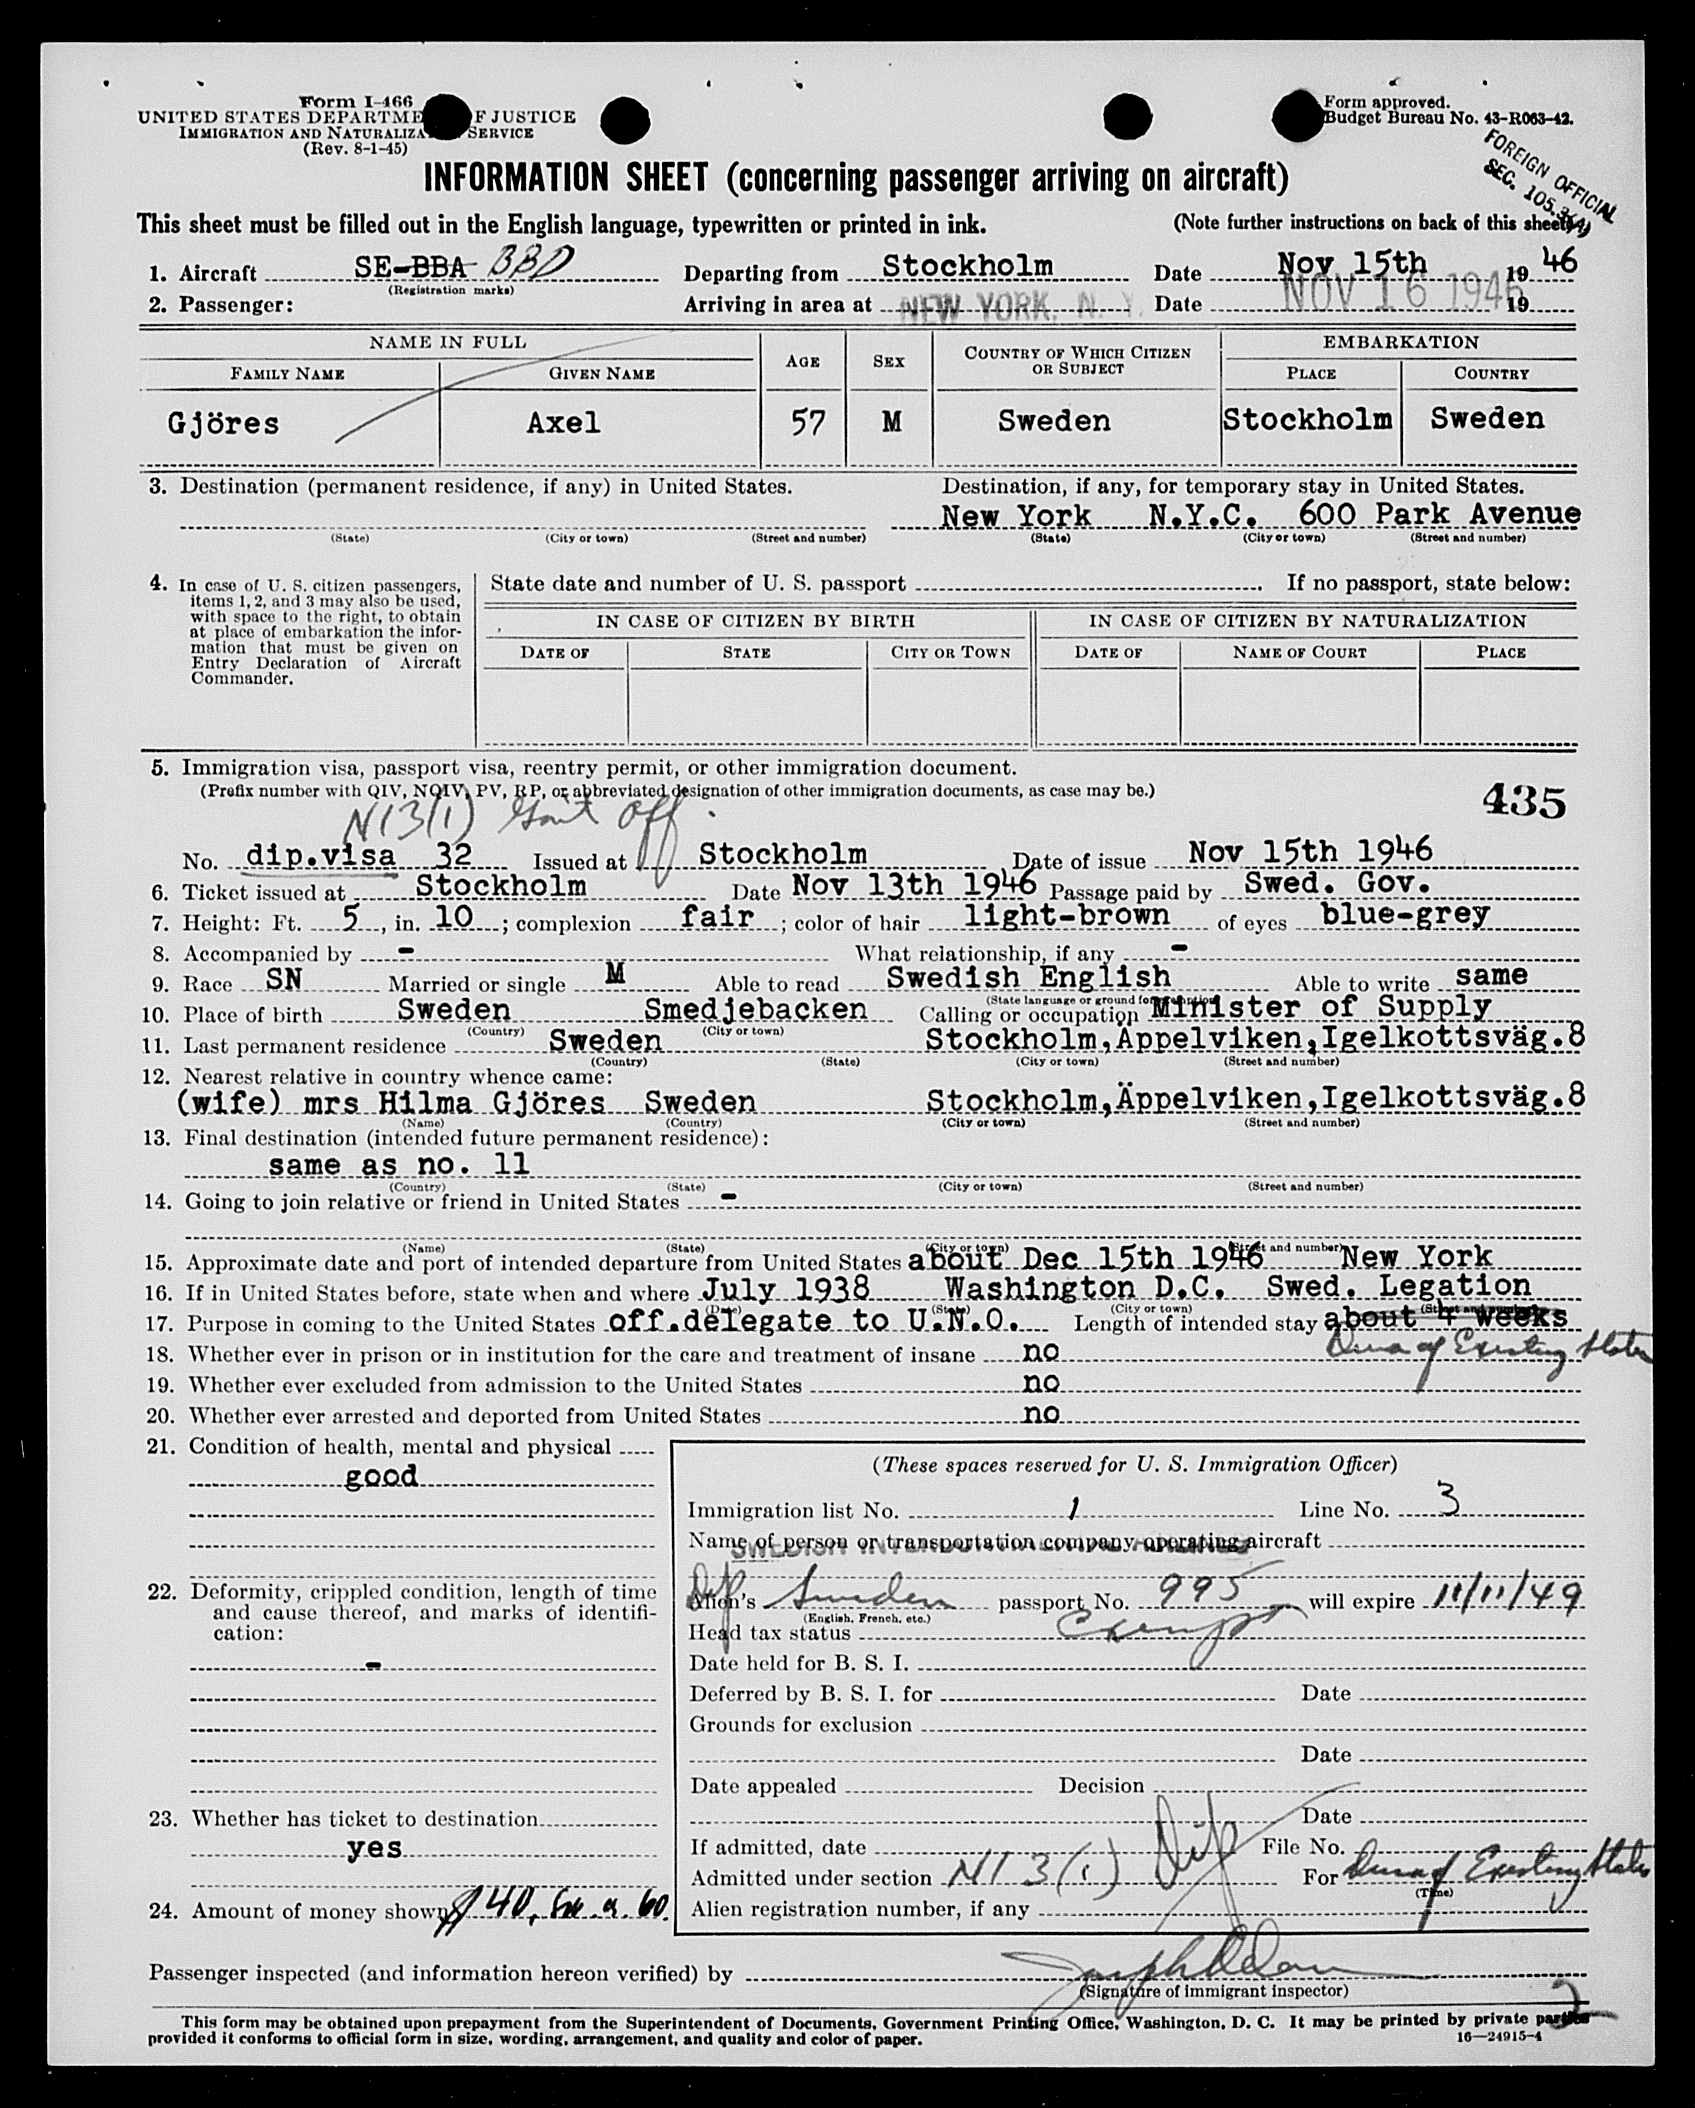 Form I-466
UNITED STATES DEPARTME F JUSTICE
IMMIGRATION AND NATURALIZA SERVICE
(Rev. 8-1-45)
Form approved.
Budget Bureau No. 43-R063-42.
FOREIGN OFFICIAL
SEC. 105.3(A)
INFORMATION SHEET (concerning passenger arriving on aircraft)
This sheet must be filled out in the English language, typewritten or printed in ink. (Note further instructions on back of this sheet)
1. Aircraft SE-BBA BBD Departing from Stockholm Date Nov 15th 19 46
(Registration marks)
2. Passenger: Arriving in area at NEW YORK, N. Y. Date NOV 16 1946 19
NAME IN FULL AGE SEX COUNTRY OF WHICH CITIZEN OR SUBJECT EMBARKATION
FAMILY NAME GIVEN NAME PLACE COUNTRY
Gjöres Axel 57 M Sweden Stockholm Sweden
3. Destination (permanent residence, if any) in United States. Destination, if any, for temporary stay in United States.
New York N.Y.C. 600 Park Avenue
(State) (City or town) (Street and number) (State) (City or town) (Street and number)
4. In case of U. S. citizen passengers,
items 1, 2, and 3 may also be used,
with space to the right, to obtain
at place of embarkation the infor-
mation that must be given on
Entry Declaration of Aircraft
Commander.
State date and number of U. S. passport . If no passport, state below:
IN CASE OF CITIZEN BY BIRTH IN CASE OF CITIZEN BY NATURALIZATION
DATE OF STATE CITY OR TOWN DATE OF NAME OF COURT PLACE
5. Immigration visa, passport visa, reentry permit, or other immigration document.
(Prefix number with QIV, NQIV, PV, RP, or abbreviated designation of other immigration documents, as case may be.)
435
N13(1) Gov't Off.
No. dip.visa 32 Issued at Stockholm Date of issue Nov 15th 1946
6. Ticket issued at Stockholm Date Nov 13th 1946 Passage paid by Swed. Gov.
7. Height: Ft. 5, in. 10; complexion fair; color of hair light-brown of eyes blue-grey
8. Accompanied by - What relationship, if any -
9. Race SN Married or single M Able to read Swedish English Able to write same
(State language or ground for exemption)
10. Place of birth Sweden Smedjebacken Calling or occupation Minister of Supply
(Country) (City or town)
11. Last permanent residence Sweden Stockholm,Äppelviken,Igelkottsväg.8
(Country) (State) (City or town) (Street and number)
12. Nearest relative in country whence came:
(wife) mrs Hilma Gjöres Sweden Stockholm,Äppelviken,Igelkottsväg.8
(Name) (Country) (City or town) (Street and number)
13. Final destination (intended future permanent residence):
same as no. 11
(Country) (State) (City or town) (Street and number)
14. Going to join relative or friend in United States -
(Name) (State) (City or town) (Street and number)
15. Approximate date and port of intended departure from United States about Dec 15th 1946 New York
16. If in United States before, state when and where July 1938 Washington D.C. Swed. Legation
(Date) (State) (City or town) (Street and number)
17. Purpose in coming to the United States off.delegate to U.N.O. Length of intended stay about 4 weeks
Dura of Existing Status
18. Whether ever in prison or in institution for the care and treatment of insane no
19. Whether ever excluded from admission to the United States no
20. Whether ever arrested and deported from United States no
21. Condition of health, mental and physical
good
22. Deformity, crippled condition, length of time
and cause thereof, and marks of identifi-
cation:
-
23. Whether has ticket to destination
yes
24. Amount of money shown $ 40,
(These spaces reserved for U. S. Immigration Officer)
Immigration list No. 1 Line No. 3
Name of person or transportation company operating aircraft
SWEDISH INTERCONTINENTAL AIRLINES
Dip
Alien's Sweden passport No. 995 will expire 11/11/49
(English, French, etc.)
Head tax status Exempt
Date held for B. S. I.
Deferred by B. S. I. for Date
Grounds for exclusion
Date
Date appealed Decision
Date
If admitted, date File No.
Admitted under section N1 3(1) Dip For Dura of Existing Status
(Time)
Alien registration number, if any
Passenger inspected (and information hereon verified) by
(Signature of immigrant inspector)
2
This form may be obtained upon prepayment from the Superintendent of Documents, Government Printing Office, Washington, D. C. It may be printed by private parties
provided it conforms to official form in size, wording, arrangement, and quality and color of paper. 16—24915-4